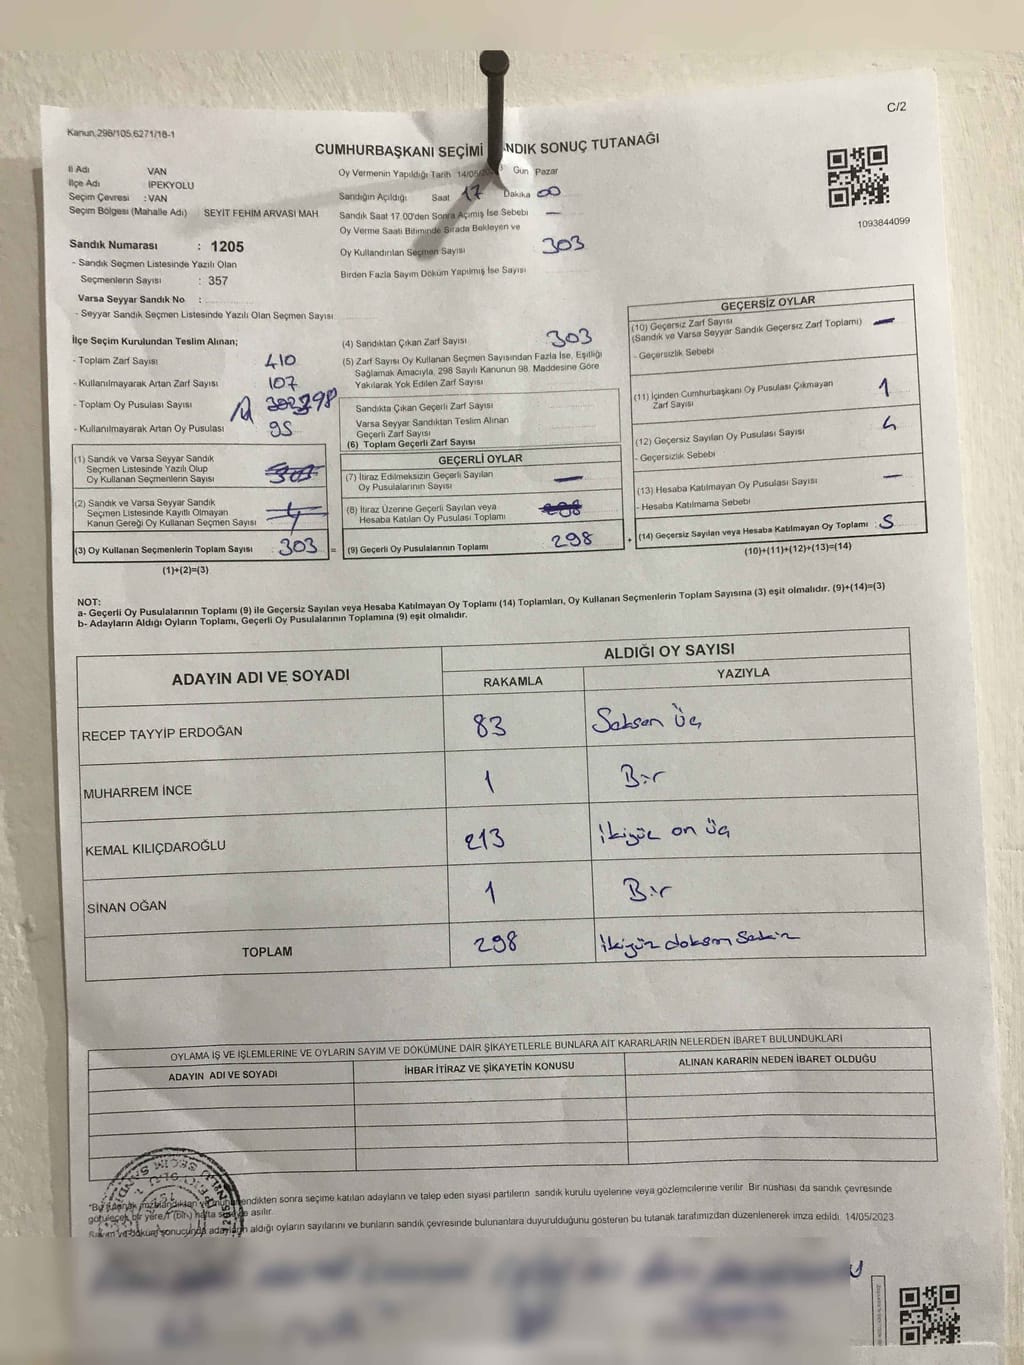 C/2
Kanun.298/105.6271/18-1
CUMHURBAŞKANI SEÇİMİ SANDIK SONUÇ TUTANAĞI
İl Adı VAN
İlçe Adı İPEKYOLU
Seçim Çevresi : VAN
Seçim Bölgesi (Mahalle Adı) SEYİT FEHİM ARVASİ MAH
Sandık Numarası : 1205
- Sandık Seçmen Listesinde Yazılı Olan
Seçmenlerin Sayısı : 357
Varsa Seyyar Sandık No :
- Seyyar Sandık Seçmen Listesinde Yazılı Olan Seçmen Sayısı
Oy Vermenin Yapıldığı Tarih 14/05/ Gün Pazar
Sandığın Açıldığı Saat 17 Dakika 00
Sandık Saat 17.00'den Sonra Açımış İse Sebebi —
Oy Verme Saati Bitiminde Sırada Bekleyen ve
Oy Kullandırılan Seçmen Sayısı 303
Birden Fazla Sayım Döküm Yapılmış İse Sayısı
1093844099
İlçe Seçim Kurulundan Teslim Alınan;
- Toplam Zarf Sayısı 410
- Kullanılmayarak Artan Zarf Sayısı 107
- Toplam Oy Pusulası Sayısı 398
- Kullanılmayarak Artan Oy Pusulası 95
(1) Sandık ve Varsa Seyyar Sandık
Seçmen Listesinde Yazılı Olup
Oy Kullanan Seçmenlerin Sayısı
(2) Sandık ve Varsa Seyyar Sandık
Seçmen Listesinde Kayıtlı Olmayan
Kanun Gereği Oy Kullanan Seçmen Sayısı
(3) Oy Kullanan Seçmenlerin Toplam Sayısı 303 =
(1)+(2)=(3)
(4) Sandıktan Çıkan Zarf Sayısı 303
(5) Zarf Sayısı Oy Kullanan Seçmen Sayısından Fazla İse, Eşitliği
Sağlamak Amacıyla, 298 Sayılı Kanunun 98. Maddesine Göre
Yakılarak Yok Edilen Zarf Sayısı
Sandıkta Çıkan Geçerli Zarf Sayısı
Varsa Seyyar Sandıktan Teslim Alınan
Geçerli Zarf Sayısı
(6) Toplam Geçerli Zarf Sayısı
GEÇERLİ OYLAR
(7) İtiraz Edilmeksizin Geçerli Sayılan
Oy Pusulalarının Sayısı —
(8) İtiraz Üzerine Geçerli Sayılan veya
Hesaba Katılan Oy Pusulası Toplamı 298
(9) Geçerli Oy Pusulalarının Toplamı 298 +
GEÇERSİZ OYLAR
(10) Geçersiz Zarf Sayısı
(Sandık ve Varsa Seyyar Sandık Geçersiz Zarf Toplamı) —
- Geçersizlik Sebebi
(11) İçinden Cumhurbaşkanı Oy Pusulası Çıkmayan
Zarf Sayısı 1
(12) Geçersiz Sayılan Oy Pusulası Sayısı 4
- Geçersizlik Sebebi
(13) Hesaba Katılmayan Oy Pusulası Sayısı —
- Hesaba Katılmama Sebebi
(14) Geçersiz Sayılan veya Hesaba Katılmayan Oy Toplamı : 5
(10)+(11)+(12)+(13)=(14)
NOT:
a- Geçerli Oy Pusulalarının Toplamı (9) ile Geçersiz Sayılan veya Hesaba Katılmayan Oy Toplamı (14) Toplamları, Oy Kullanan Seçmenlerin Toplam Sayısına (3) eşit olmalıdır. (9)+(14)=(3)
b- Adayların Aldığı Oyların Toplamı, Geçerli Oy Pusulalarının Toplamına (9) eşit olmalıdır.
ADAYIN ADI VE SOYADI ALDIĞI OY SAYISI
RAKAMLA YAZIYLA
RECEP TAYYİP ERDOĞAN 83 Seksen Üç
MUHARREM İNCE 1 Bir
KEMAL KILIÇDAROĞLU 213 İkiyüz on üç
SİNAN OĞAN 1 Bir
TOPLAM 298 İkiyüz doksan sekiz
OYLAMA İŞ VE İŞLEMLERİNE VE OYLARIN SAYIM VE DÖKÜMÜNE DAİR ŞİKAYETLERLE BUNLARA AİT KARARLARIN NELERDEN İBARET BULUNDUKLARI
ADAYIN ADI VE SOYADI İHBAR İTİRAZ VE ŞİKAYETİN KONUSU ALINAN KARARIN NEDEN İBARET OLDUĞU
endikten sonra seçime katılan adayların ve talep eden siyasi partilerin sandık kurulu üyelerine veya gözlemcilerine verilir Bir nüshası da sandık çevresinde
görülecek bir yere 1 (bir) hafta asılır.
aldığı oyların sayılarını ve bunların sandık çevresinde bulunanlara duyurulduğunu gösteren bu tutanak tarafımızdan düzenlenerek imza edildi. 14/05/2023